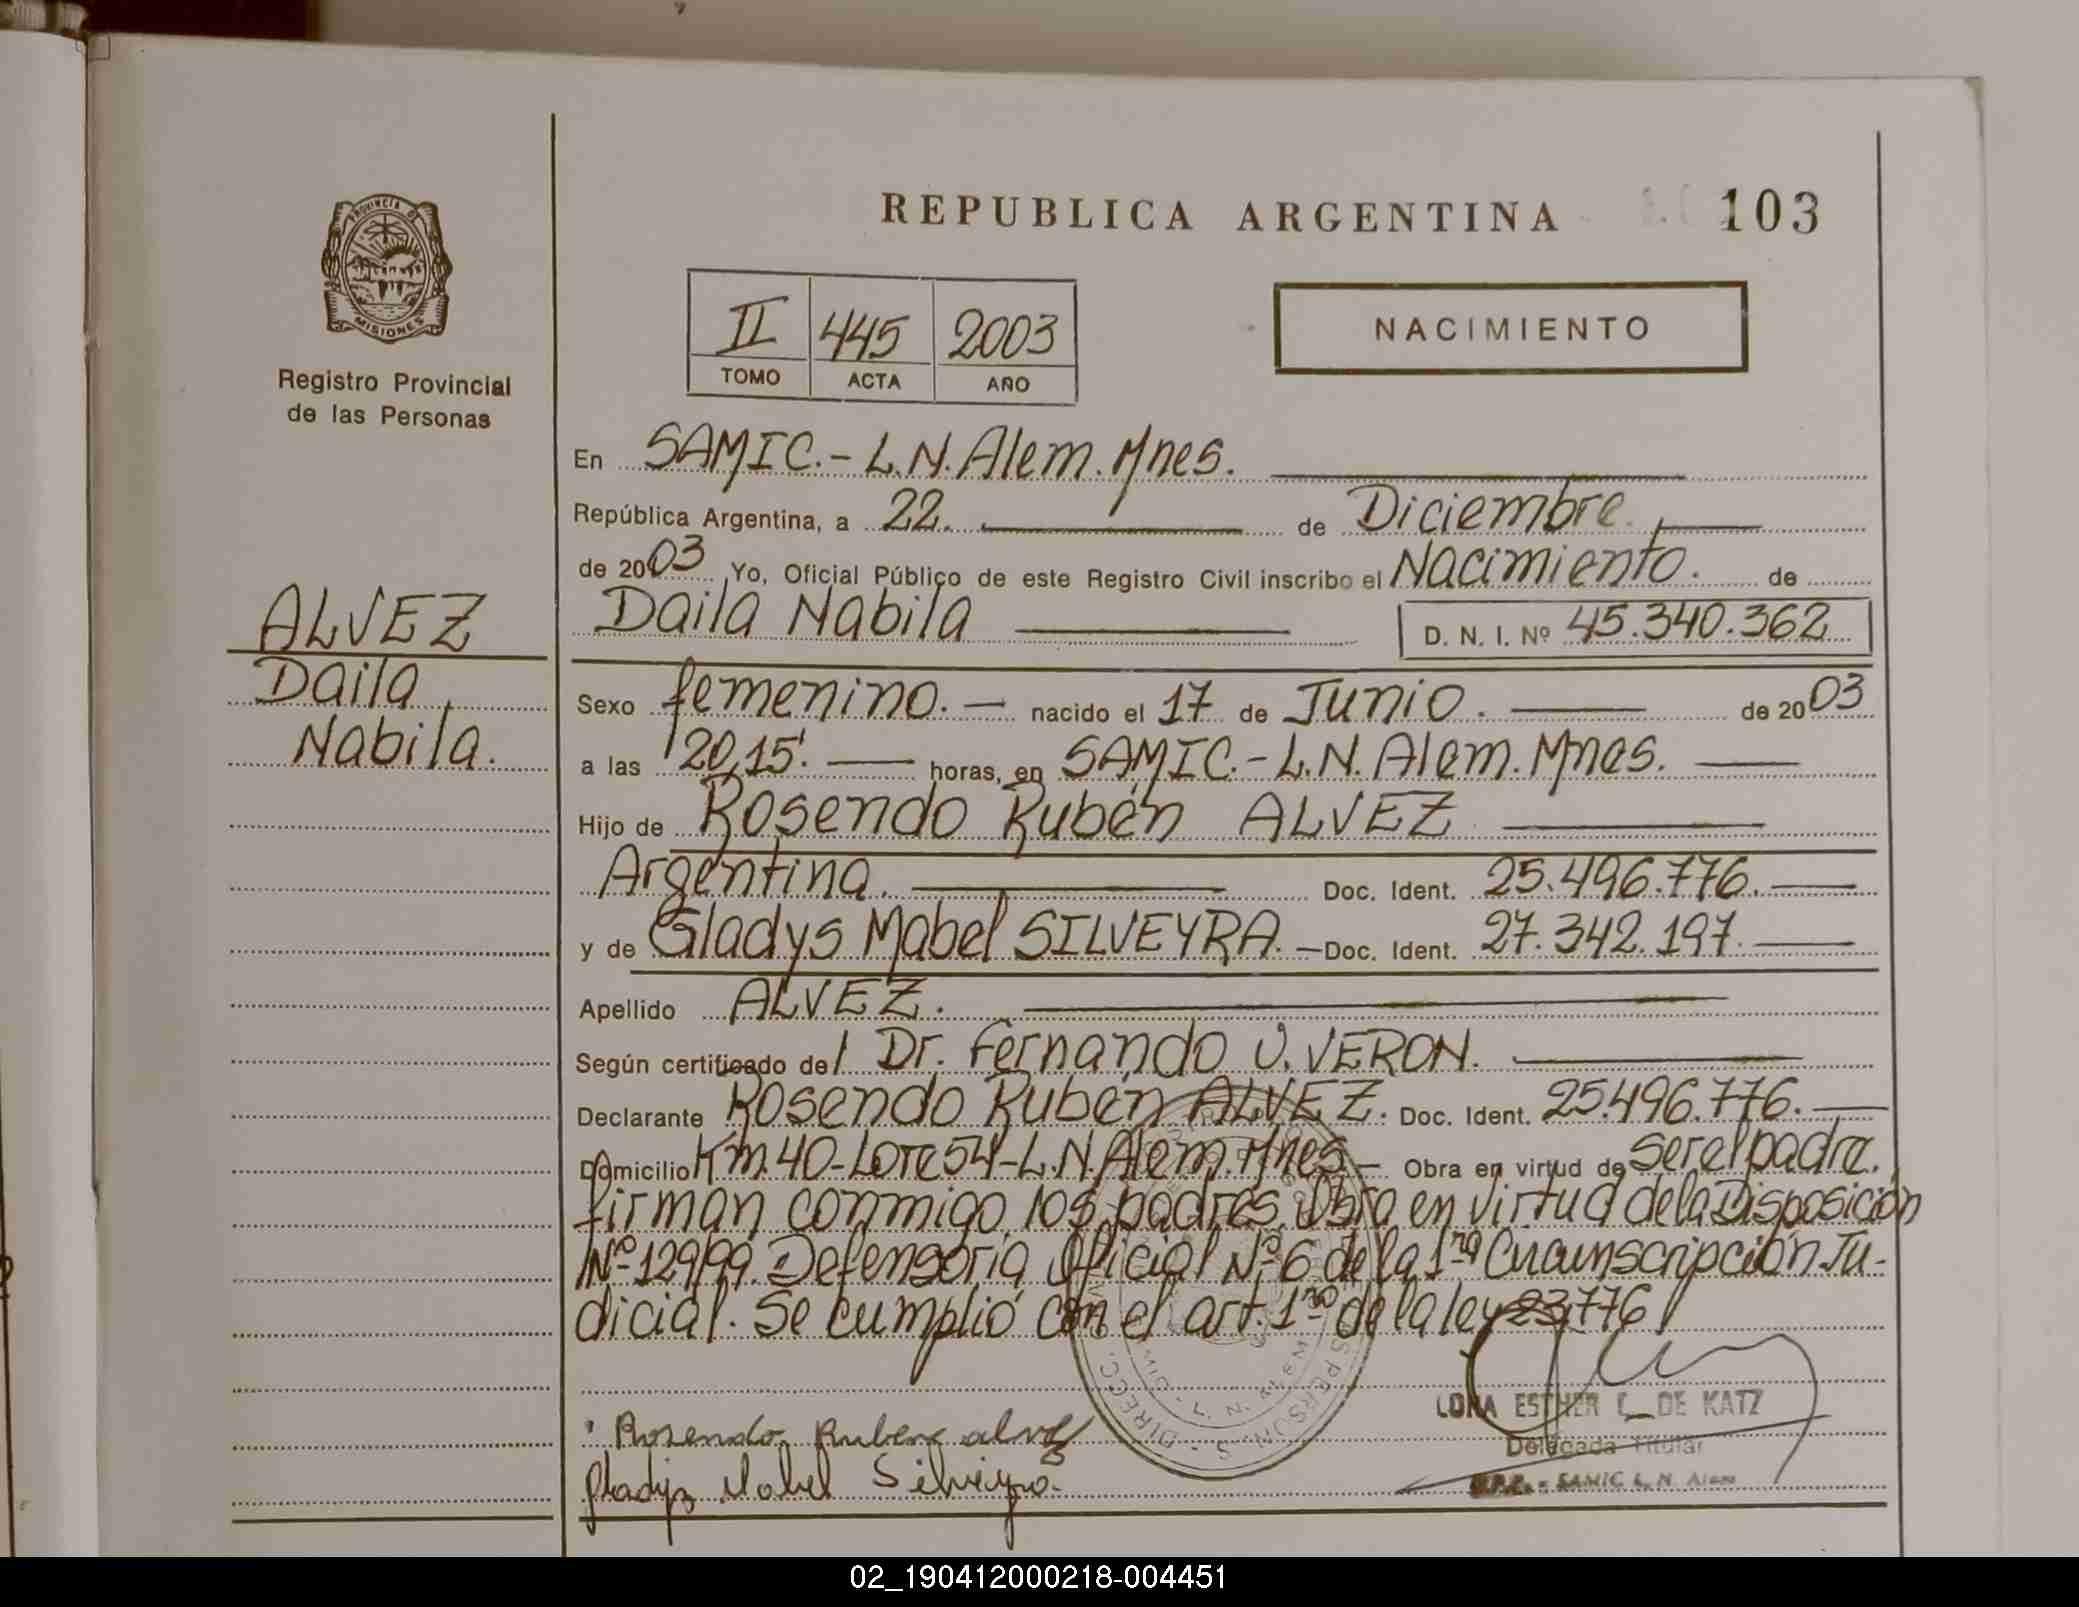 REPUBLICA ARGENTINA
103
PROVINCIA DE
MISIONES
Registro Provincial
de las Personas
II 445 2003
TOMO ACTA AÑO
NACIMIENTO
En SAMIC.- L.N. Alem. Mnes.
República Argentina, a 22. de Diciembre.
de 2003 Yo, Oficial Público de este Registro Civil inscribo el Nacimiento. de
Daila Nabila D. N. I. Nº 45.340.362
ALVEZ
Daila
Nabila.
Sexo femenino. nacido el 17 de Junio. de 2003
a las 20,15'. horas, en SAMIC.- L.N. Alem. Mnes.
Hijo de Rosendo Rubén ALVEZ
Argentina. Doc. Ident. 25.496.776.
y de Gladys Mabel SILVEYRA. Doc. Ident. 27.342.197.
Apellido ALVEZ.
Según certificado del Dr. Fernando U. VERON.
Declarante Rosendo Rubén ALVEZ. Doc. Ident. 25.496.776.
Domicilio Km.40-Lote 54-L.N. Alem. Mnes. Obra en virtud de ser el padre.
firman conmigo los padres. Obra en virtud de la Disposición
Nº 129/99. Defensoria Oficial Nº 6 de la 1ra Circunscripción Ju-
dicial. Se cumplió con el art. 1ro de la ley 23.776
LONA ESTHER DE KATZ
Delegada Titular
R.P.P. - SAMIC L. N. Alem
Rosendo Ruben alvez
Gladys Mabel Silveyra.
02_190412000218-004451